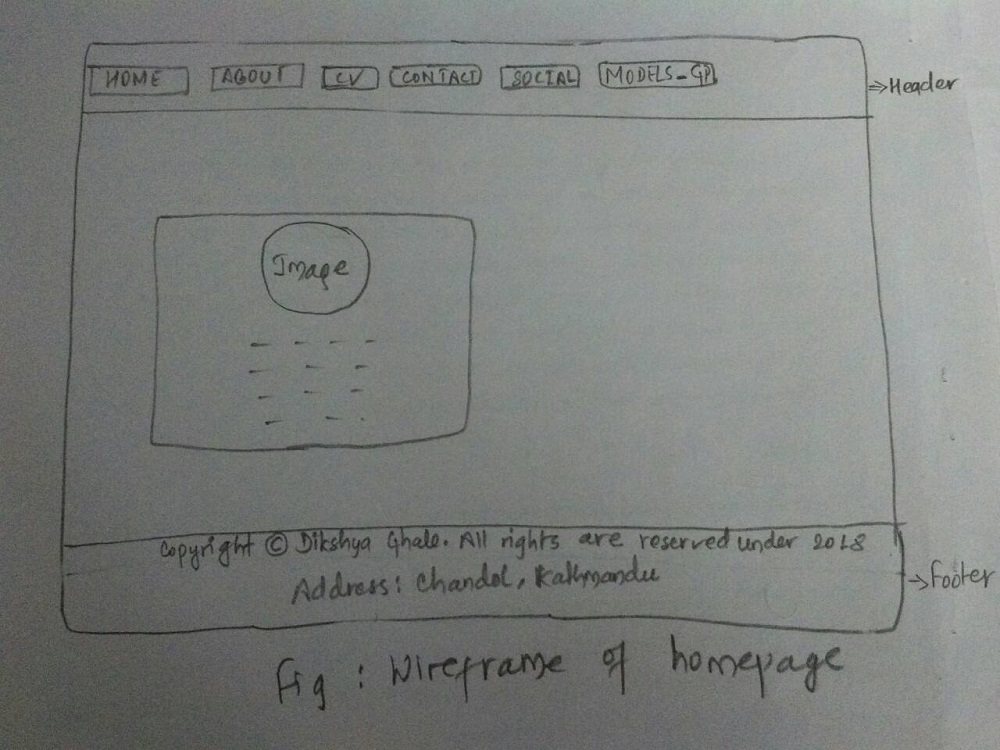 HOME ABOUT CV CONTACT SOCIAL MODELS_GP
⇒Header
Image
Copyright © Dikshya Ghale. All rights are reserved under 2018
Address: Chandol, Kathmandu
→Footer
fig : Wireframe of homepage